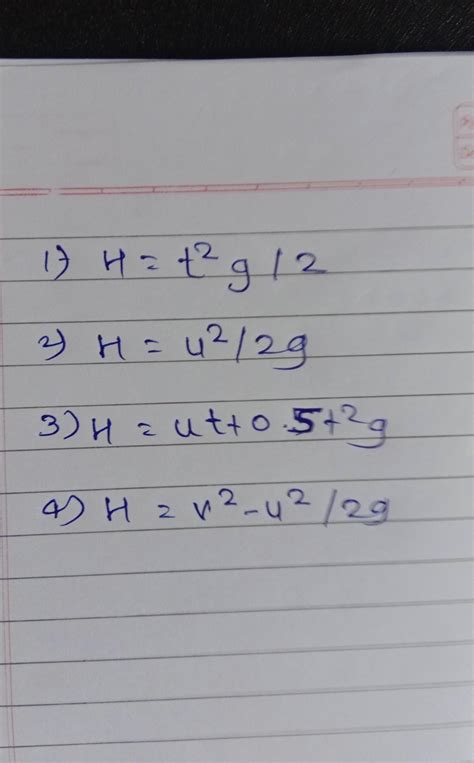 1) H = t²g/2
2) H = u²/2g
3) H = ut+0.5t²g
4) H = v²-u²/2g